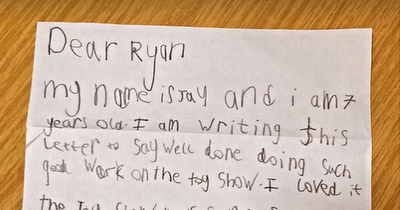 Dear Ryan
my name is Jay and i am 7
years old. I am writing this
Letter to say well done doing such
good work on the toy show. I loved it
the